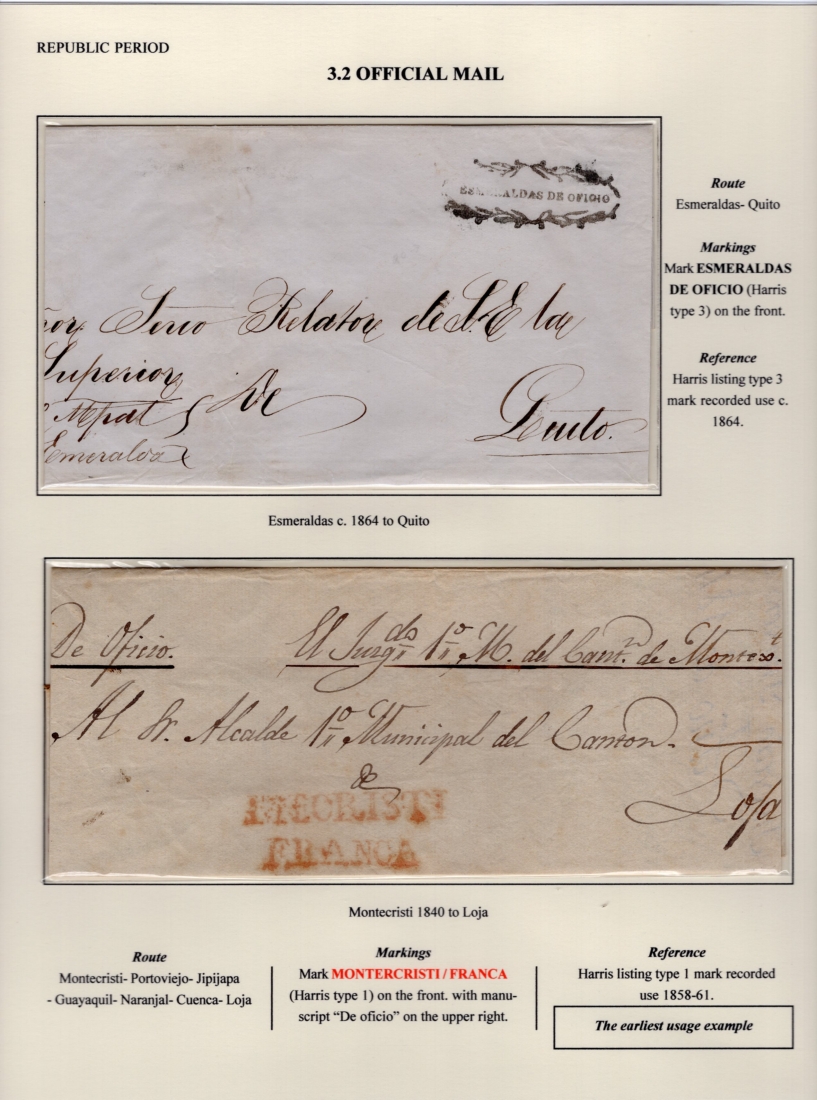 REPUBLIC PERIOD
3.2 OFFICIAL MAIL
ESMERALDAS DE OFICIO
Serio Relator de S.E la
Superior
De
Quito.
Esmeralda
Route
Esmeraldas- Quito
Markings
Mark ESMERALDAS
DE OFICIO (Harris
type 3) on the front.
Reference
Harris listing type 3
mark recorded use c.
1864.
Esmeraldas c. 1864 to Quito
De Oficio.
El Juzgdo 1o M. del Cant.n de Montext.
Al Sr. Alcalde 1o Municipal del Canton.
de
Loja
MTECRISTI
FRANCA
Montecristi 1840 to Loja
Route
Montecristi- Portoviejo- Jipijapa
- Guayaquil- Naranjal- Cuenca- Loja
Markings
Mark MONTERCRISTI / FRANCA
(Harris type 1) on the front. with manu-
script “De oficio” on the upper right.
Reference
Harris listing type 1 mark recorded
use 1858-61.
The earliest usage example